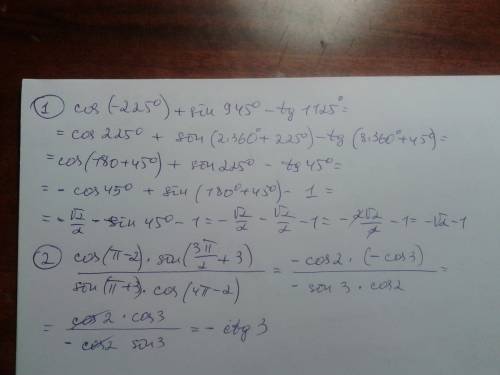 ① cos(-225°) + sin 945° - tg 1125° =
= cos 225° + sin(2·360° + 225°) - tg(8·360° + 45°) =
= cos(180 + 45°) + sin 225° - tg 45° =
= - cos 45° + sin(180° + 45°) - 1 =
= - √2/2 - sin 45° - 1 = - √2/2 - √2/2 - 1 = - 2√2/2 - 1 = - √2 - 1
② cos(π-2) · sin(3π/2 + 3) / sin(π+3) · cos(4π-2) = - cos 2 · (- cos 3) / - sin 3 · cos 2 =
= cos 2 · cos 3 / - cos 2 sin 3 = - ctg 3